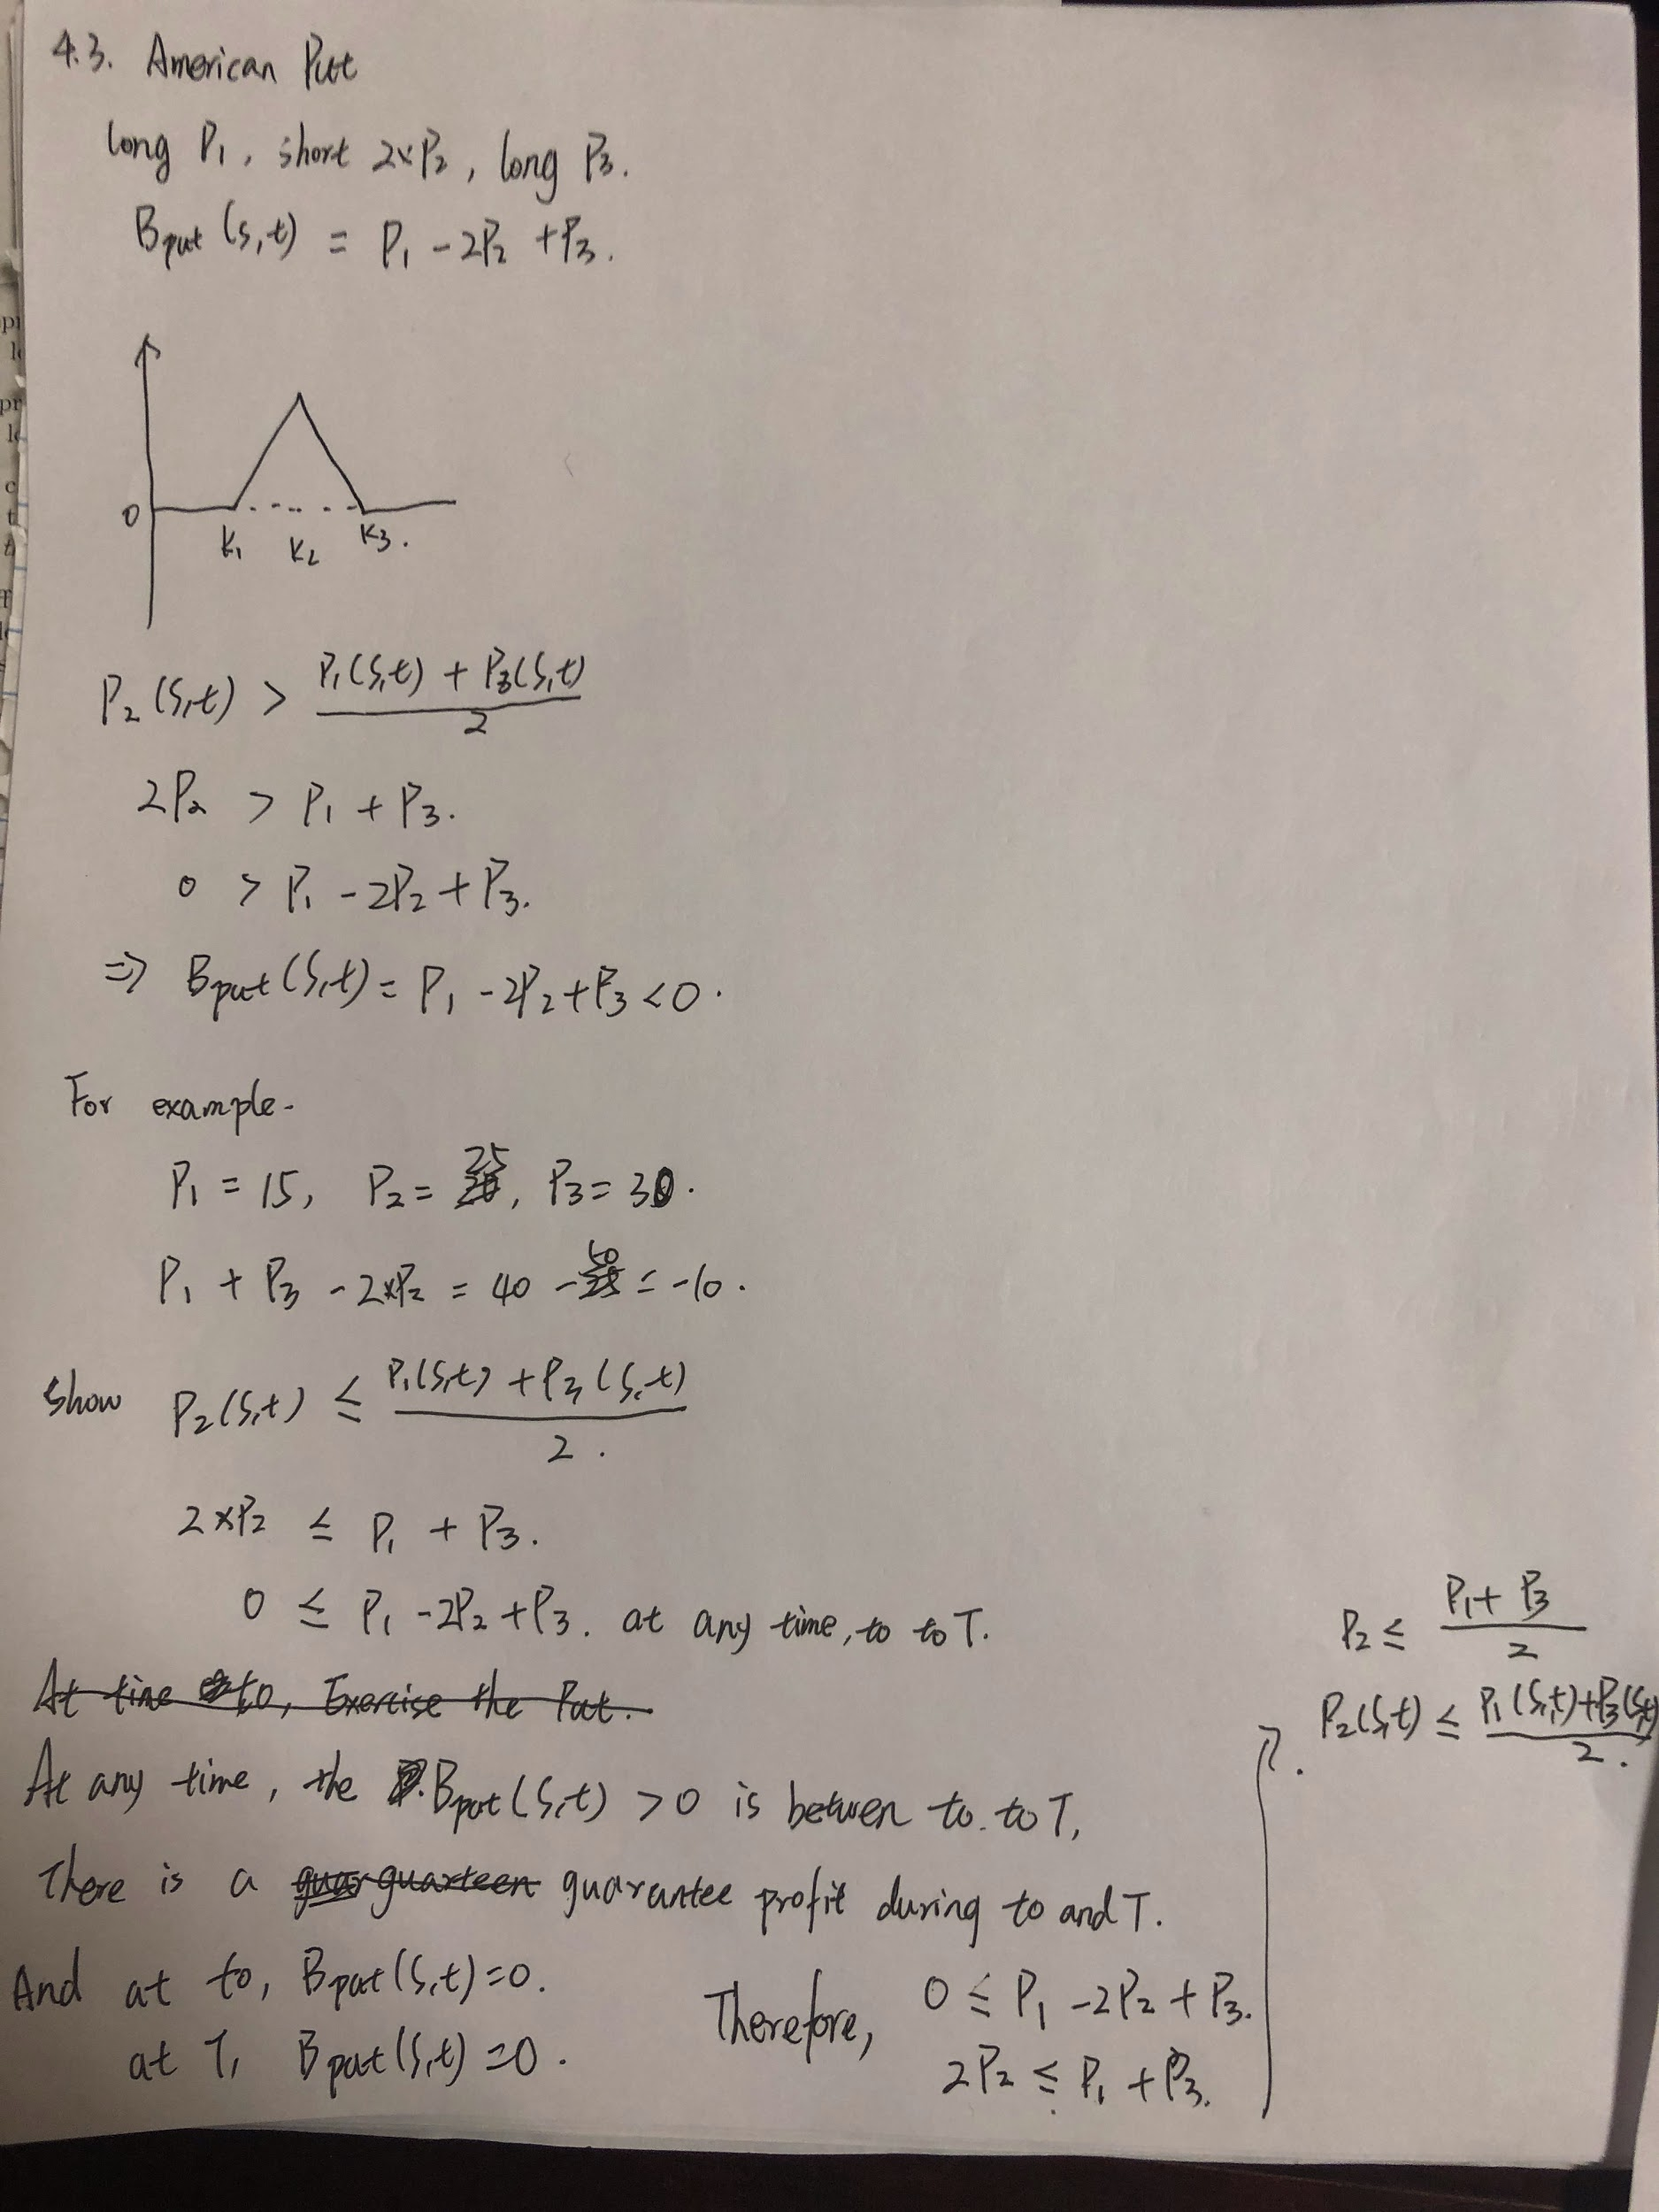 4.3. American Put
long P₁, short 2×P₂, long P₃.
Bput (S,t) = P₁ - 2P₂ + P₃.
0
K₁ K₂ K₃.
P₂(S,t) > P₁(S,t) + P₃(S,t) / 2
2P₂ > P₁ + P₃.
0 > P₁ - 2P₂ + P₃.
⇒ Bput(S,t) = P₁ - 2P₂ + P₃ < 0.
For example.
P₁ = 15, P₂ = 25, P₃ = 30.
P₁ + P₃ - 2×P₂ = 40 - 50 = -10.
Show P₂(S,t) ≤ P₁(S,t) + P₃(S,t) / 2.
2×P₂ ≤ P₁ + P₃.
0 ≤ P₁ - 2P₂ + P₃. at any time, to to T.
At time to, Exercise the Put.
At any time, the Bput(S,t) > 0 is betwen to to T,
There is a guarteen guarantee profit during to and T.
And at to, Bput(S,t) = 0.
at T, Bput(S,t) = 0.
Therefore, 0 ≤ P₁ - 2P₂ + P₃.
2P₂ ≤ P₁ + P₃.
P₂ ≤ P₁ + P₃ / 2
P₂(S,t) ≤ P₁(S,t) + P₃(S,t) / 2.